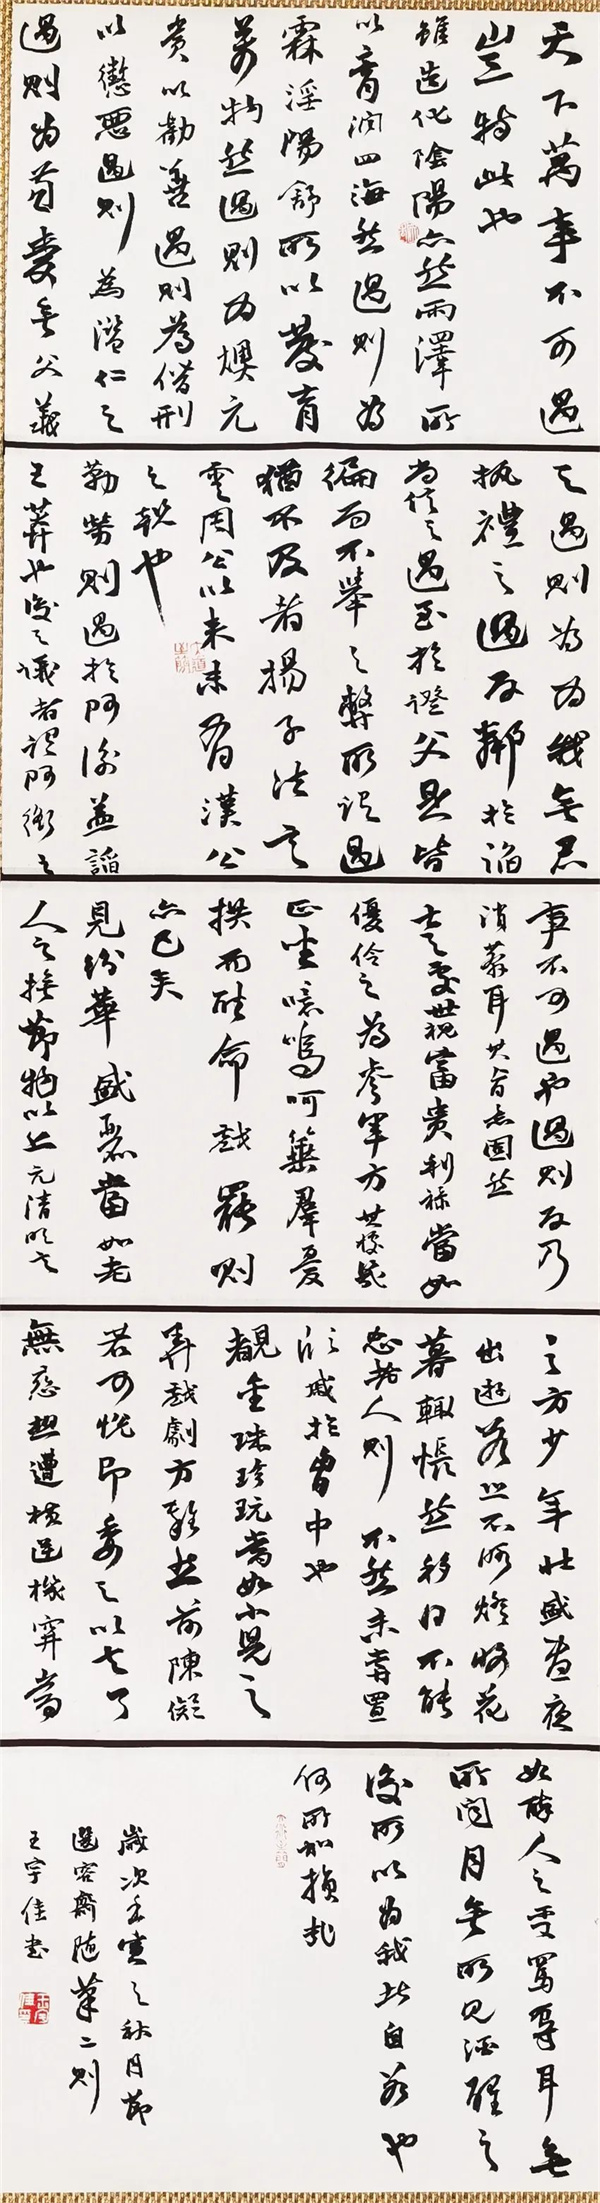 天下萬事不可過
豈特此也
雖造化陰陽亦然雨澤所
以膏潤四海然過則為
霖淫陽舒所以發育
萬物然過則為燠亢
賞以勸善過則為僭刑
以懲惡過則為濫仁之
過則為兼愛無父義
之過則為為我無君
執禮之過反鄰於諂
尚信之過至於證父是皆
偏而不舉之弊所謂過
猶不及者揚子法言
云周公以來未有漢公
之懿也
勤勞則過於阿衡蓋諂
王莽也後之議者謂阿衡之
事不可過也過則反乃
誚莽耳其旨意固然
士之處世視富貴利祿當如
優伶之為參軍方其據几
正坐噫嗚呵箠羣優
拱而聽命戲罷則
亦已矣
見紛華盛麗當如老
人之撫節物以上元清明言
之方少年壯盛晝夜
出遊若恐不暇燈收花
暮輒悵然移日不能
忘老人則不然未嘗置
欣戚於胷中也
覩金珠珍玩當如小兒之
弄戲劇方雜然前陳疑
若可悅即委之以去了
無戀想遭橫逆機穽當
如醉人之受罵辱耳無
所聞目無所見酒醒之
後所以為我者自若也
何所加損哉
歲次壬寅之秋月節
選容齋隨筆二則
王宇佳書